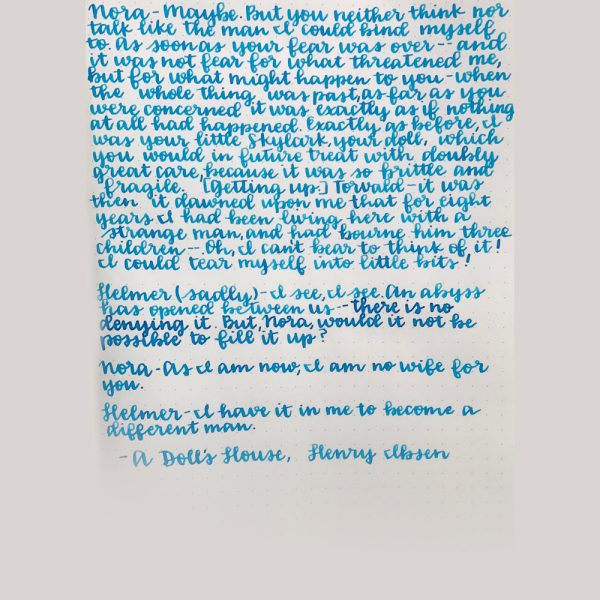 Nora - Maybe. But you neither think nor
talk like the man I could bind myself
to. As soon as your fear was over -- and
it was not fear for what threatened me,
but for what might happen to you - when
the whole thing was past, as far as you
were concerned it was exactly as if nothing
at all had happened. Exactly as before, I
was your little skylark, your doll, which
you would in future treat with doubly
great care, because it was so brittle and
fragile. [Getting up.] Torvald - it was
then it dawned upon me that for eight
years I had been living here with a
strange man, and had bourne him three
children -- Oh, I can't bear to think of it!
I could tear myself into little bits!
Helmer (sadly) - I see, I see. An abyss
has opened between us -- there is no
denying it. But, Nora, would it not be
possible to fill it up?
Nora - As I am now, I am no wife for
you.
Helmer - I have it in me to become a
different man.
- A Doll's House, Henry Ibsen